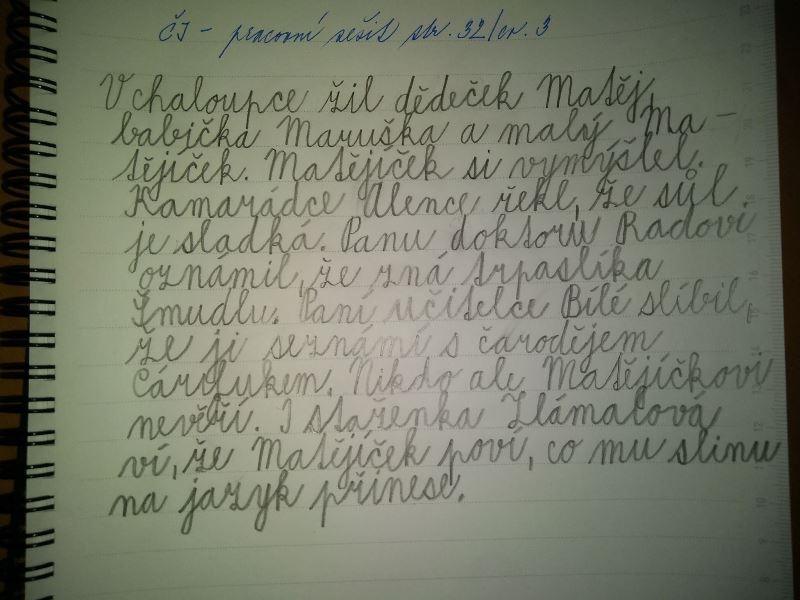 ČJ - pracovní sešit str. 32/cv. 3
V chaloupce žil dědeček Matěj,
babička Maruška a malý Ma-
tějíček. Matějíček si vymýšlel.
Kamarádce Alence řekl, že sůl
je sladká. Panu doktoru Radovi
oznámil, že zná trpaslíka
Šmudlu. Paní učitelce Bílé slíbil,
že ji seznámí s čarodějem
Čárofukem. Nikdo ale Matějíčkovi
nevěří. I stařenka Zlámalová
ví, že Matějíček poví, co mu slinu
na jazyk přinese.